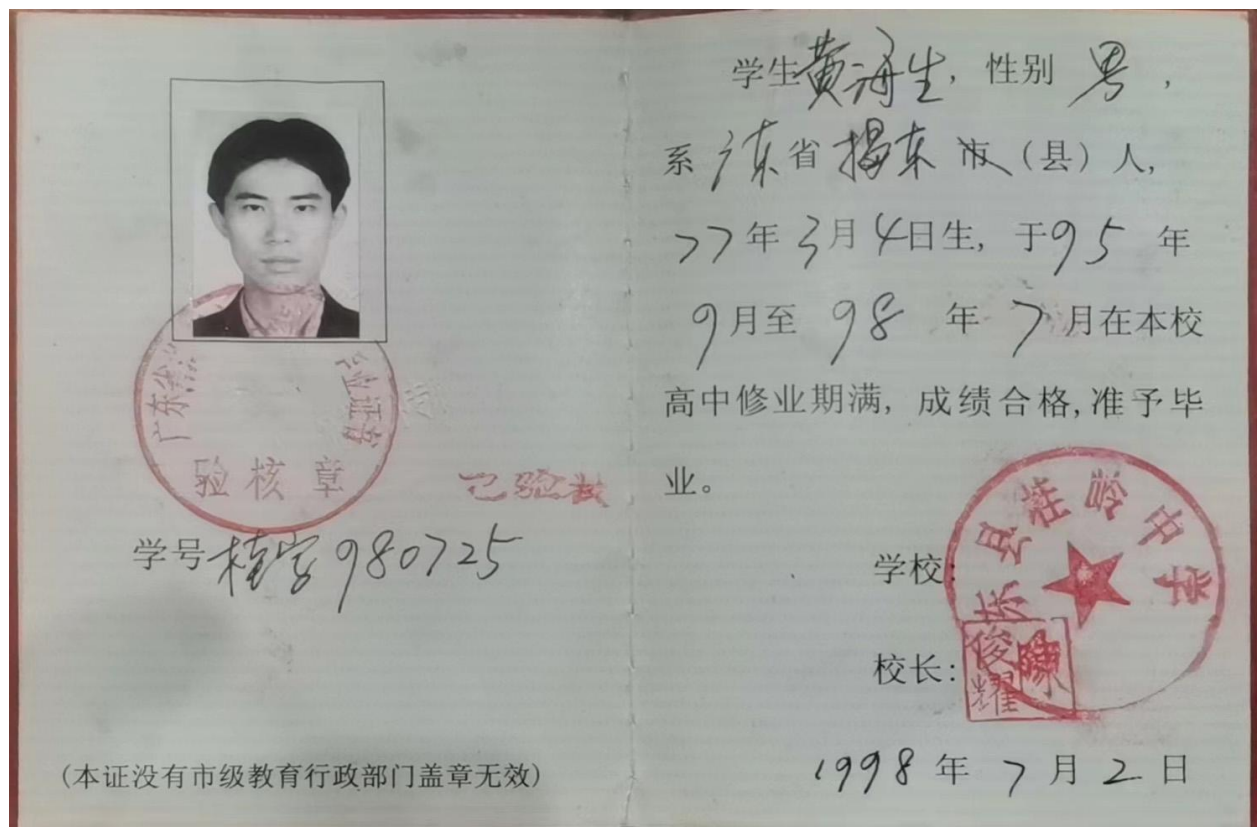 广东省
毕业证书
验核章
已验核
学号桂字980725
(本证没有市级教育行政部门盖章无效)
学生黄海生，性别 男，
系广东省揭东市（县）人，
77年3月4日生，于95年
9月至98年7月在本校
高中修业期满，成绩合格，准予毕
业。
学校：
东县桂岭中学
校长：
陈俊耀
1998年7月2日